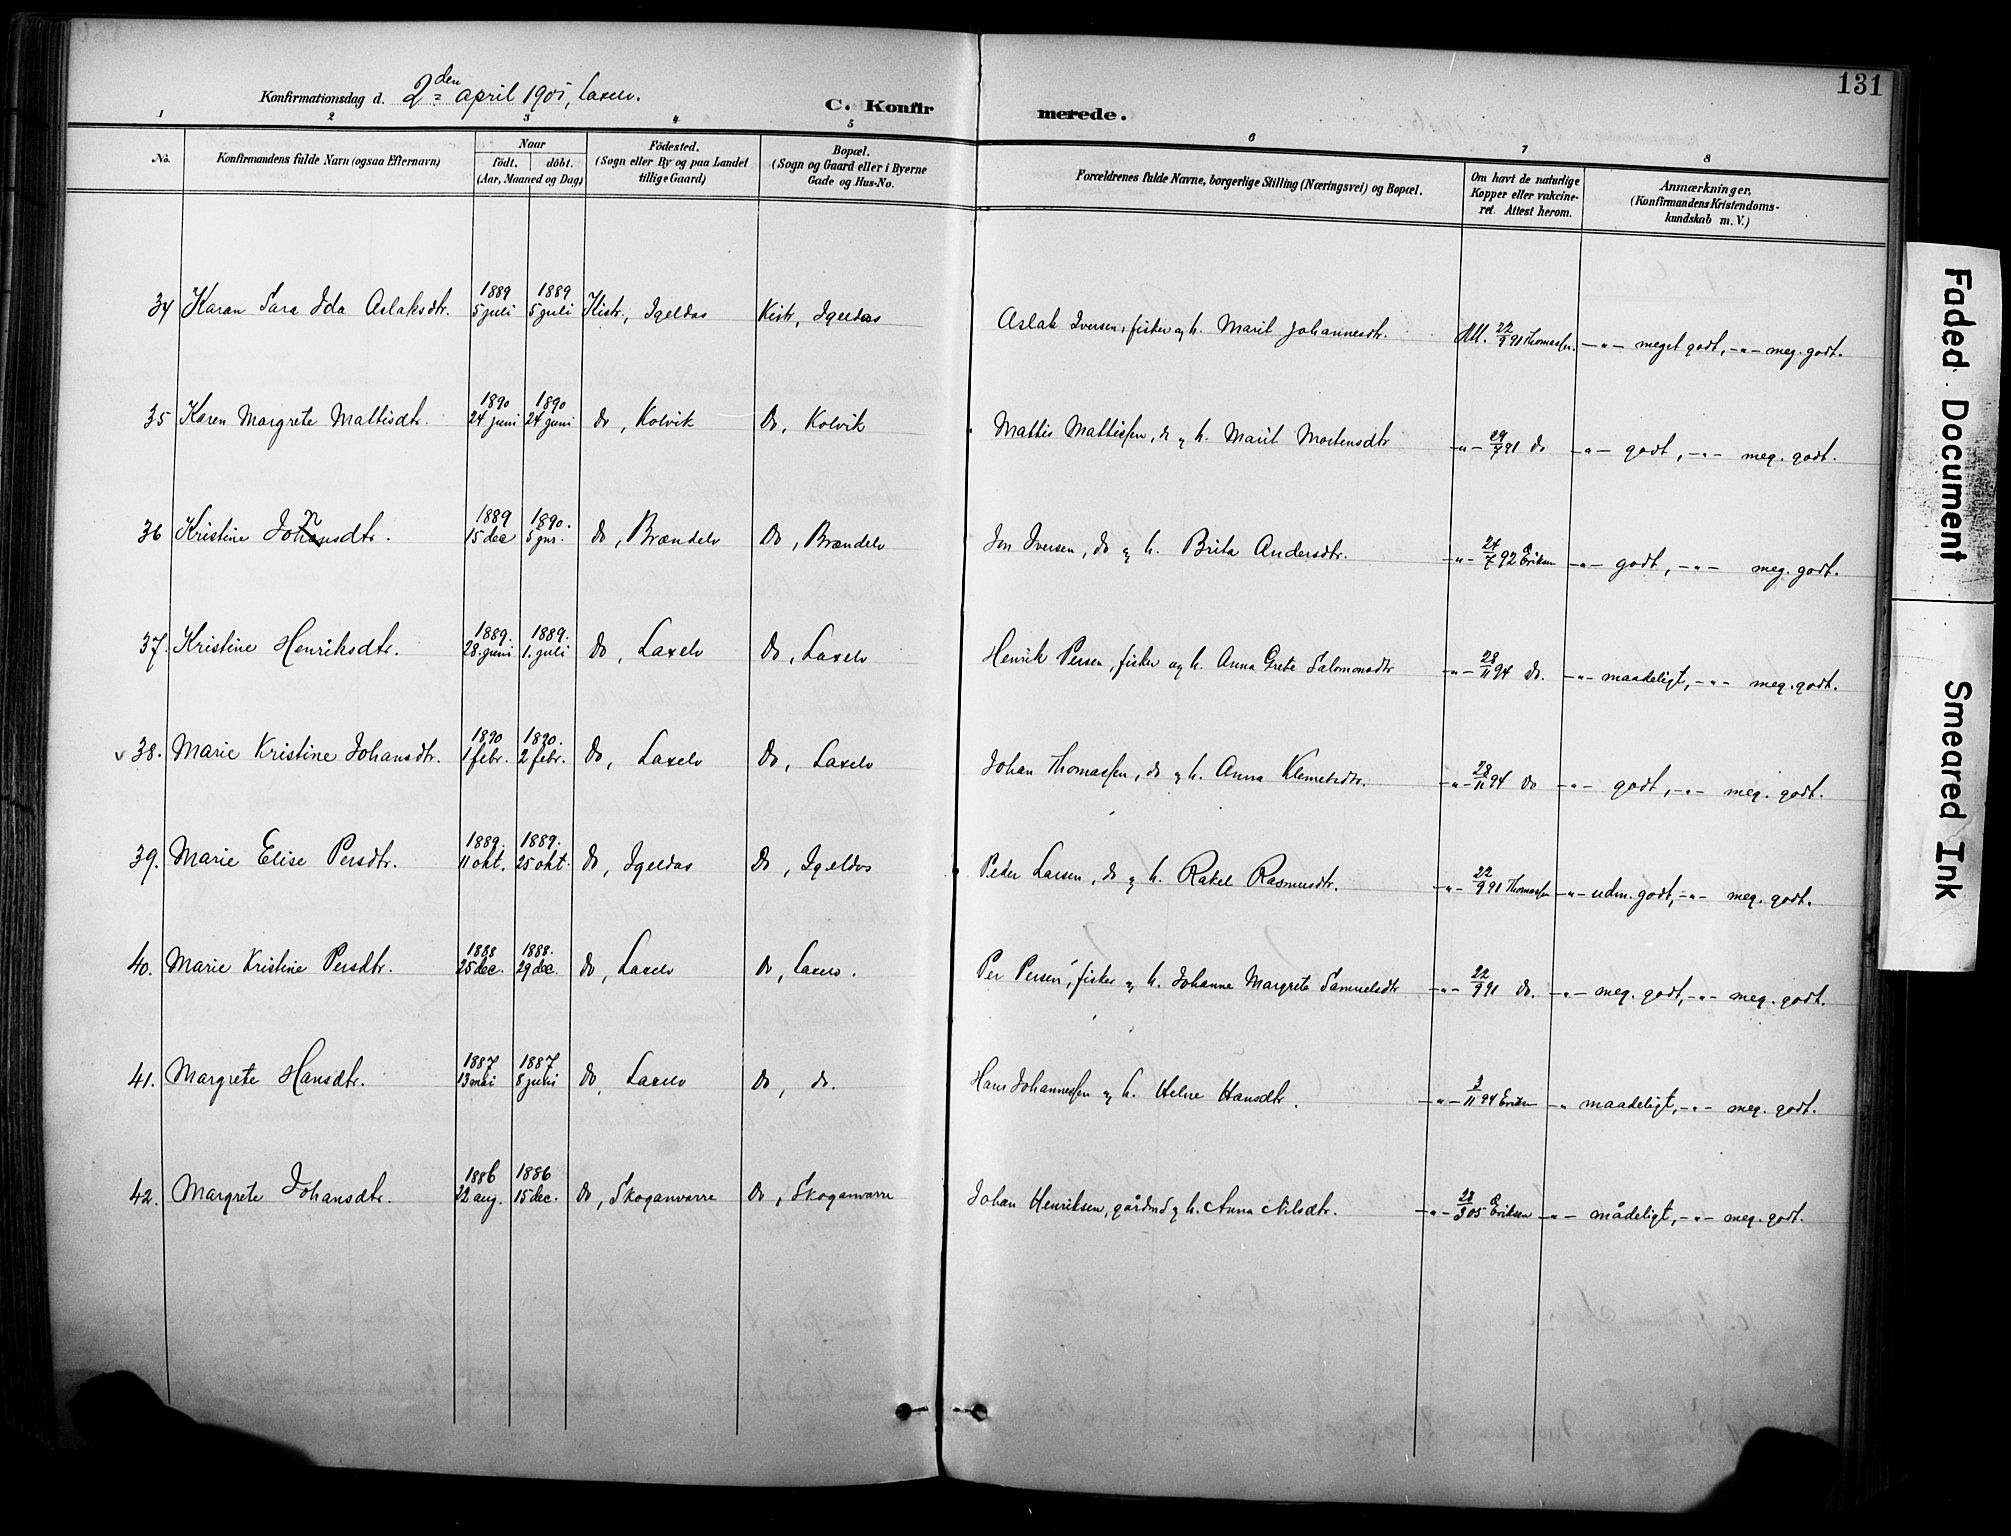 131
Konfirmationsdag d. 2den april 1905, Laxelv.
C. Konfirmerede.
1 2 3 4 5 6 7 8
No. Konfirmandens fulde Navn (ogsaa Efternavn) Naar født. døbt. (Aar, Maaned og Dag) Födested. (Sogn eller By og paa Landet tillige Gaard) Bopæl. (Sogn og Gaard eller i Byerne Gade og Hus-No. Forældrenes fulde Navne, borgerlige Stilling (Næringsvei) og Bopæl. Om havt de naturlige Kopper eller vakcineret. Attest herom. Anmærkninger. (Konfirmandens Kristendomskundskab m. V.)
34 Karan Sara Ida Aslaksdtr. 1889 5 juli 1889 5 juli Kistr., Igeldas Kistr, Igeldas Aslak Iversen, fisker og h. Marit Johannesdtr. Att. 22/9 91 Thomassen. -"- meget godt, -"- meg. godt.
35 Karen Margrete Mattisdtr. 1890 24 juni 1890 24 juni do, Kolvik Do, Kolvik Mattis Mattissen, do og h. Marit Mortensdtr -"- 29/7 91 do -"- godt, -"- meg. godt.
36 Kristine Johansdtr. 1889 15 dec 1890. 5 jnr. do, Brændelv Do, Brændelv Jon Iversen, do og h. Brita Andersdtr. -"- 24/7 92 Eriksen -"- godt, -"- meg. godt.
37. Kristine Henriksdtr. 1889. 28. juni 1889. 1. juli Do, Laxelv Do, Laxelv Henrik Persen, fisker og h. Anna Grete Salomonsdtr -"- 28/11 94 do. -"- maadeligt, -"- meg. godt.
v 38. Marie Kristine Johansdtr. 1890 1 febr. 1890. 2 febr. Do, Laxelv Do, Laxelv Johan Thomassen, do og h. Anna Klemetsdtr. -"- 28/11 94 do -"- godt, -"- meg. godt.
39. Marie Elise Persdtr. 1889. 11 okt. 1889. 25 okt. Do, Igeldas Do, Igeldas Peder Larsen, do og h. Rakel Rasmusdtr. -"- 22/9 91 Thomassen -"- udm. godt, -"- meg. godt.
40. Marie Kristine Persdtr. 1888 25 dec. 1888. 29 dec. do, Laxelv Do, Laxelv. Per Persen, fisker og h. Johanne Margrete Samuelsdtr -"- 22/9 91 do. -"- meg. godt, -"- meg. godt.
41. Margrete Hansdtr. 1887 13 mai 1887 8 juli do, Laxelv Do, do. Hans Johannessen og h. Helne Hansdtr. -"- 3/11 94 Eriksen -"- maadeligt, -"- meg. godt.
42. Margrete Johansdtr. 1886 22 aug. 1886 15 dec. Do, Skoganvarre Do, Skoganvarre Johan Henriksen, gårdmd og h. Anna Nilsdtr. -"- 28/3 05 Eriksen -"- mådeligt, -"- meg. godt.
Faded Document
Smeared Ink